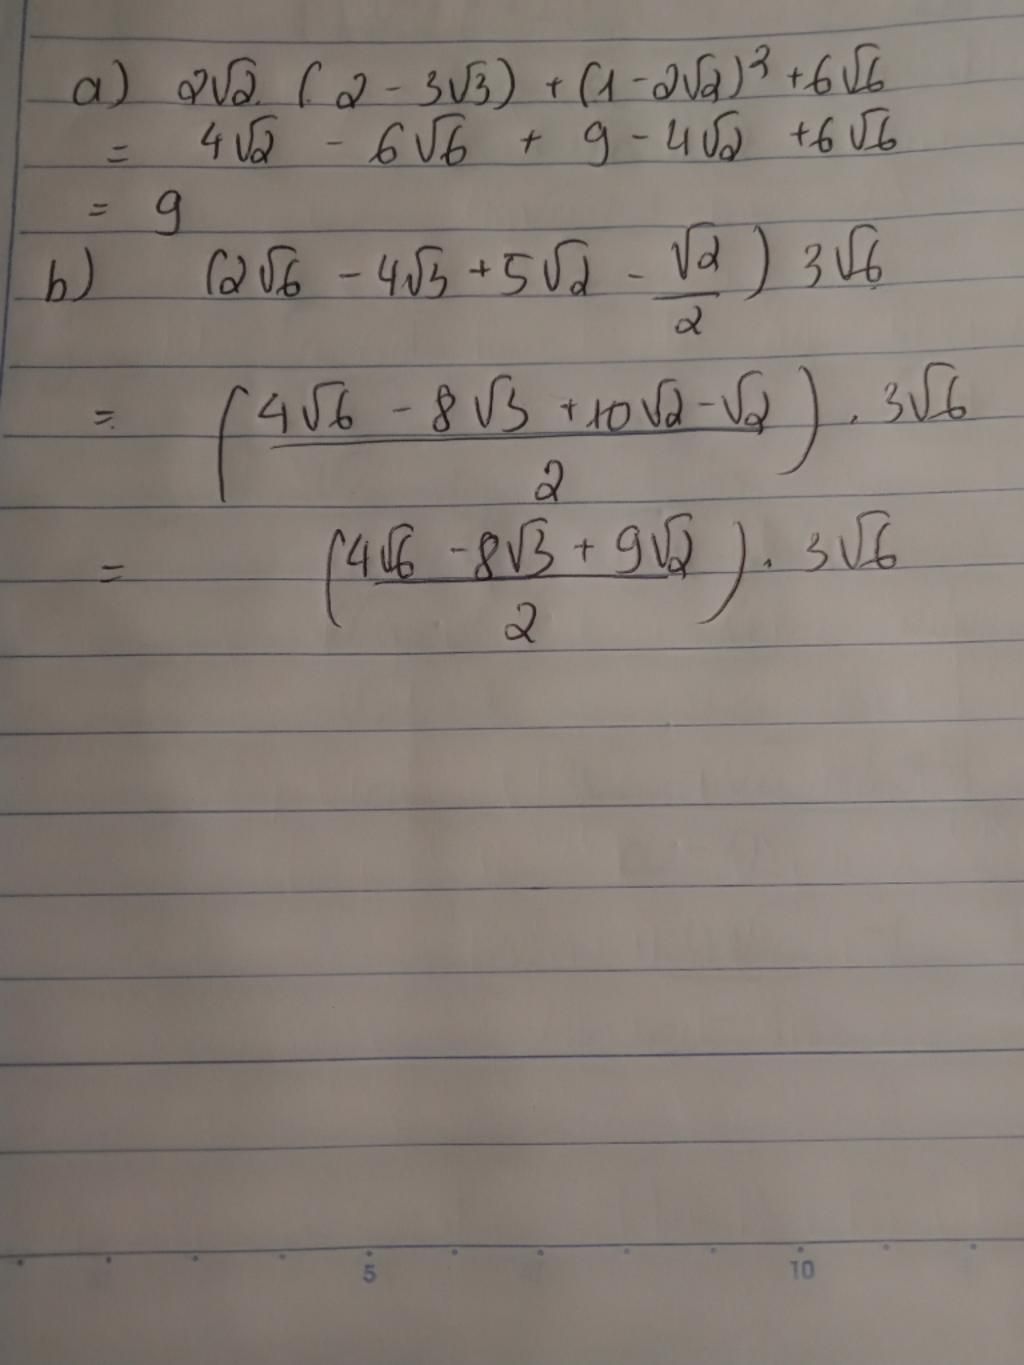 a) 2√2 (2 - 3√3) + (1 - 2√2)² + 6√6
= 4√2 - 6√6 + 9 - 4√2 + 6√6
= 9
b) (2√6 - 4√3 + 5√2 - √2/2) 3√6
= ((4√6 - 8√3 + 10√2 - √2)/2) . 3√6
= ((4√6 - 8√3 + 9√2)/2) . 3√6
5 10